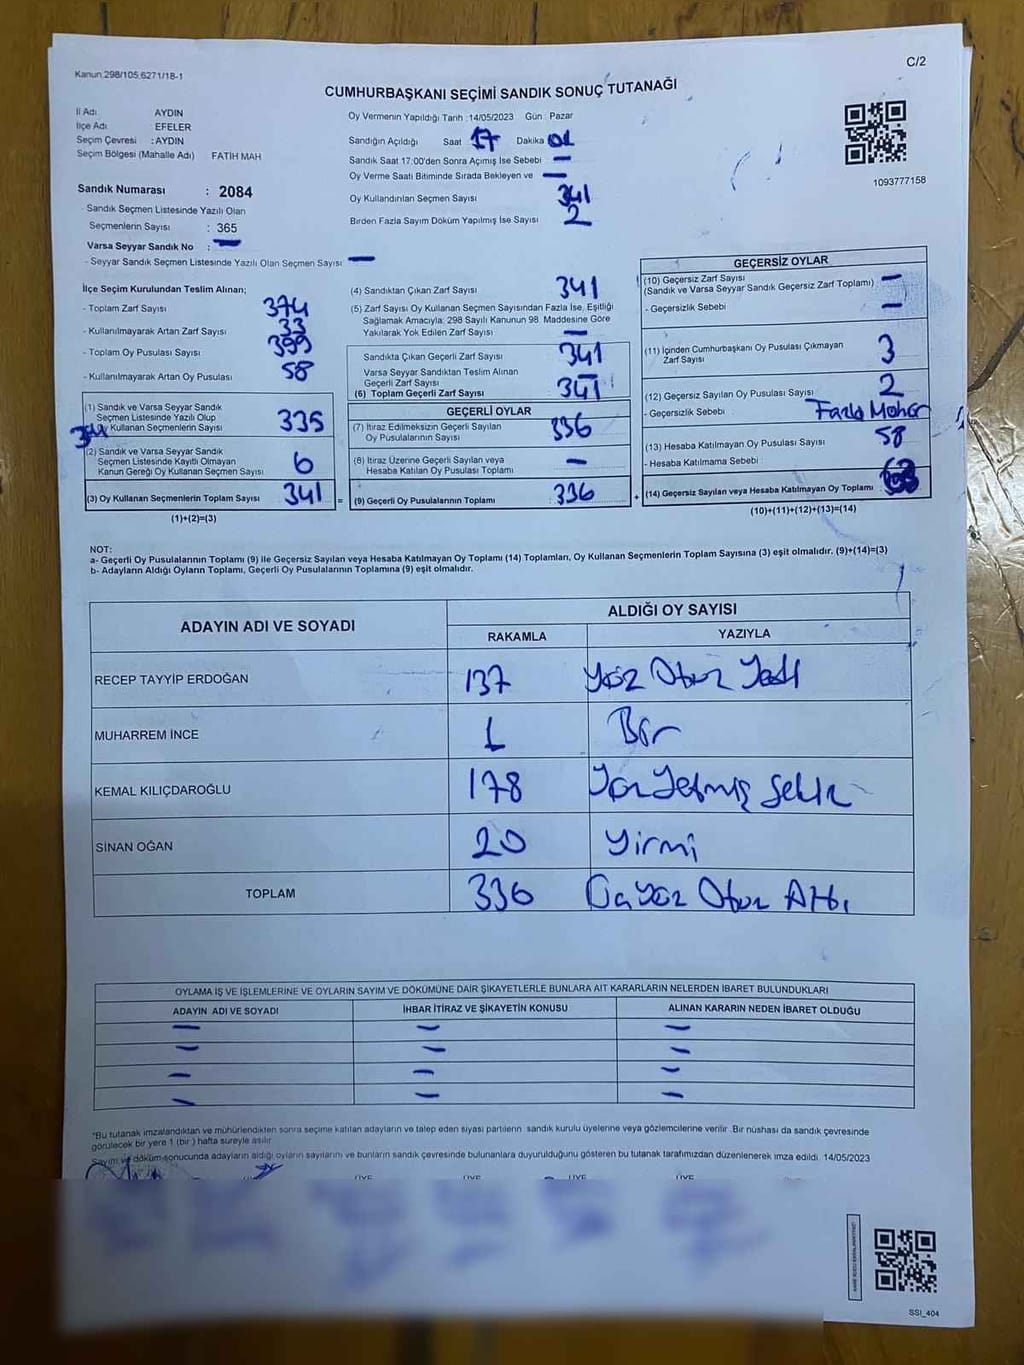 Kanun.298/105.6271/18-1
C/2
CUMHURBAŞKANI SEÇİMİ SANDIK SONUÇ TUTANAĞI
İl Adı : AYDIN
İlçe Adı EFELER
Seçim Çevresi : AYDIN
Seçim Bölgesi (Mahalle Adı) FATİH MAH
Sandık Numarası : 2084
- Sandık Seçmen Listesinde Yazılı Olan
Seçmenlerin Sayısı : 365
Varsa Seyyar Sandık No : —
- Seyyar Sandık Seçmen Listesinde Yazılı Olan Seçmen Sayısı : —
Oy Vermenin Yapıldığı Tarih :14/05/2023 Gün : Pazar
Sandığın Açıldığı Saat 17 Dakika 01
Sandık Saat 17:00'den Sonra Açımış İse Sebebi : —
Oy Verme Saati Bitiminde Sırada Bekleyen ve —
Oy Kullandırılan Seçmen Sayısı 341
Birden Fazla Sayım Döküm Yapılmış İse Sayısı : 2
1093777158
İlçe Seçim Kurulundan Teslim Alınan;
- Toplam Zarf Sayısı 374
- Kullanılmayarak Artan Zarf Sayısı 33
- Toplam Oy Pusulası Sayısı 399
- Kullanılmayarak Artan Oy Pusulası 58
(1) Sandık ve Varsa Seyyar Sandık
Seçmen Listesinde Yazılı Olup
Oy Kullanan Seçmenlerin Sayısı 335
(2) Sandık ve Varsa Seyyar Sandık
Seçmen Listesinde Kayıtlı Olmayan
Kanun Gereği Oy Kullanan Seçmen Sayısı 6
(3) Oy Kullanan Seçmenlerin Toplam Sayısı 341 =
(1)+(2)=(3)
(4) Sandıktan Çıkan Zarf Sayısı 341
(5) Zarf Sayısı Oy Kullanan Seçmen Sayısından Fazla İse, Eşitliği
Sağlamak Amacıyla; 298 Sayılı Kanunun 98. Maddesine Göre
Yakılarak Yok Edilen Zarf Sayısı —
Sandıkta Çıkan Geçerli Zarf Sayısı 341
Varsa Seyyar Sandıktan Teslim Alınan
Geçerli Zarf Sayısı —
(6) Toplam Geçerli Zarf Sayısı 341
GEÇERLİ OYLAR
(7) İtiraz Edilmeksizin Geçerli Sayılan
Oy Pusulalarının Sayısı 336
(8) İtiraz Üzerine Geçerli Sayılan veya
Hesaba Katılan Oy Pusulası Toplamı —
(9) Geçerli Oy Pusulalarının Toplamı 336 +
GEÇERSİZ OYLAR
(10) Geçersiz Zarf Sayısı —
(Sandık ve Varsa Seyyar Sandık Geçersiz Zarf Toplamı)
- Geçersizlik Sebebi : —
(11) İçinden Cumhurbaşkanı Oy Pusulası Çıkmayan
Zarf Sayısı 3
(12) Geçersiz Sayılan Oy Pusulası Sayısı 2
- Geçersizlik Sebebi : Fazla Mühür
(13) Hesaba Katılmayan Oy Pusulası Sayısı 58
- Hesaba Katılmama Sebebi :
(14) Geçersiz Sayılan veya Hesaba Katılmayan Oy Toplamı 63
(10)+(11)+(12)+(13)=(14)
NOT:
a- Geçerli Oy Pusulalarının Toplamı (9) ile Geçersiz Sayılan veya Hesaba Katılmayan Oy Toplamı (14) Toplamları, Oy Kullanan Seçmenlerin Toplam Sayısına (3) eşit olmalıdır. (9)+(14)=(3)
b- Adayların Aldığı Oyların Toplamı, Geçerli Oy Pusulalarının Toplamına (9) eşit olmalıdır.
ADAYIN ADI VE SOYADI
ALDIĞI OY SAYISI
RAKAMLA YAZIYLA
RECEP TAYYİP ERDOĞAN 137 Yüz Otuz Yedi
MUHARREM İNCE 1 Bir
KEMAL KILIÇDAROĞLU 178 Yüz Yetmiş Sekiz
SİNAN OĞAN 20 Yirmi
TOPLAM 336 Üçyüz Otuz Altı
OYLAMA İŞ VE İŞLEMLERİNE VE OYLARIN SAYIM VE DÖKÜMÜNE DAİR ŞİKAYETLERLE BUNLARA AİT KARARLARIN NELERDEN İBARET BULUNDUKLARI
ADAYIN ADI VE SOYADI İHBAR İTİRAZ VE ŞİKAYETİN KONUSU ALINAN KARARIN NEDEN İBARET OLDUĞU
— — —
— — —
— — —
— — —
*Bu tutanak imzalandıktan ve mühürlendikten sonra seçime katılan adayların ve talep eden siyasi partilerin sandık kurulu üyelerine veya gözlemcilerine verilir .Bir nüshası da sandık çevresinde
görülecek bir yere 1 (bir ) hafta süreyle asılır.
Sayım ve döküm sonucunda adayların aldığı oyların sayılarını ve bunların sandık çevresinde bulunanlara duyurulduğunu gösteren bu tutanak tarafımızdan düzenlenerek imza edildi. 14/05/2023
ÜYE ÜYE ÜYE ÜYE
SSİ_404